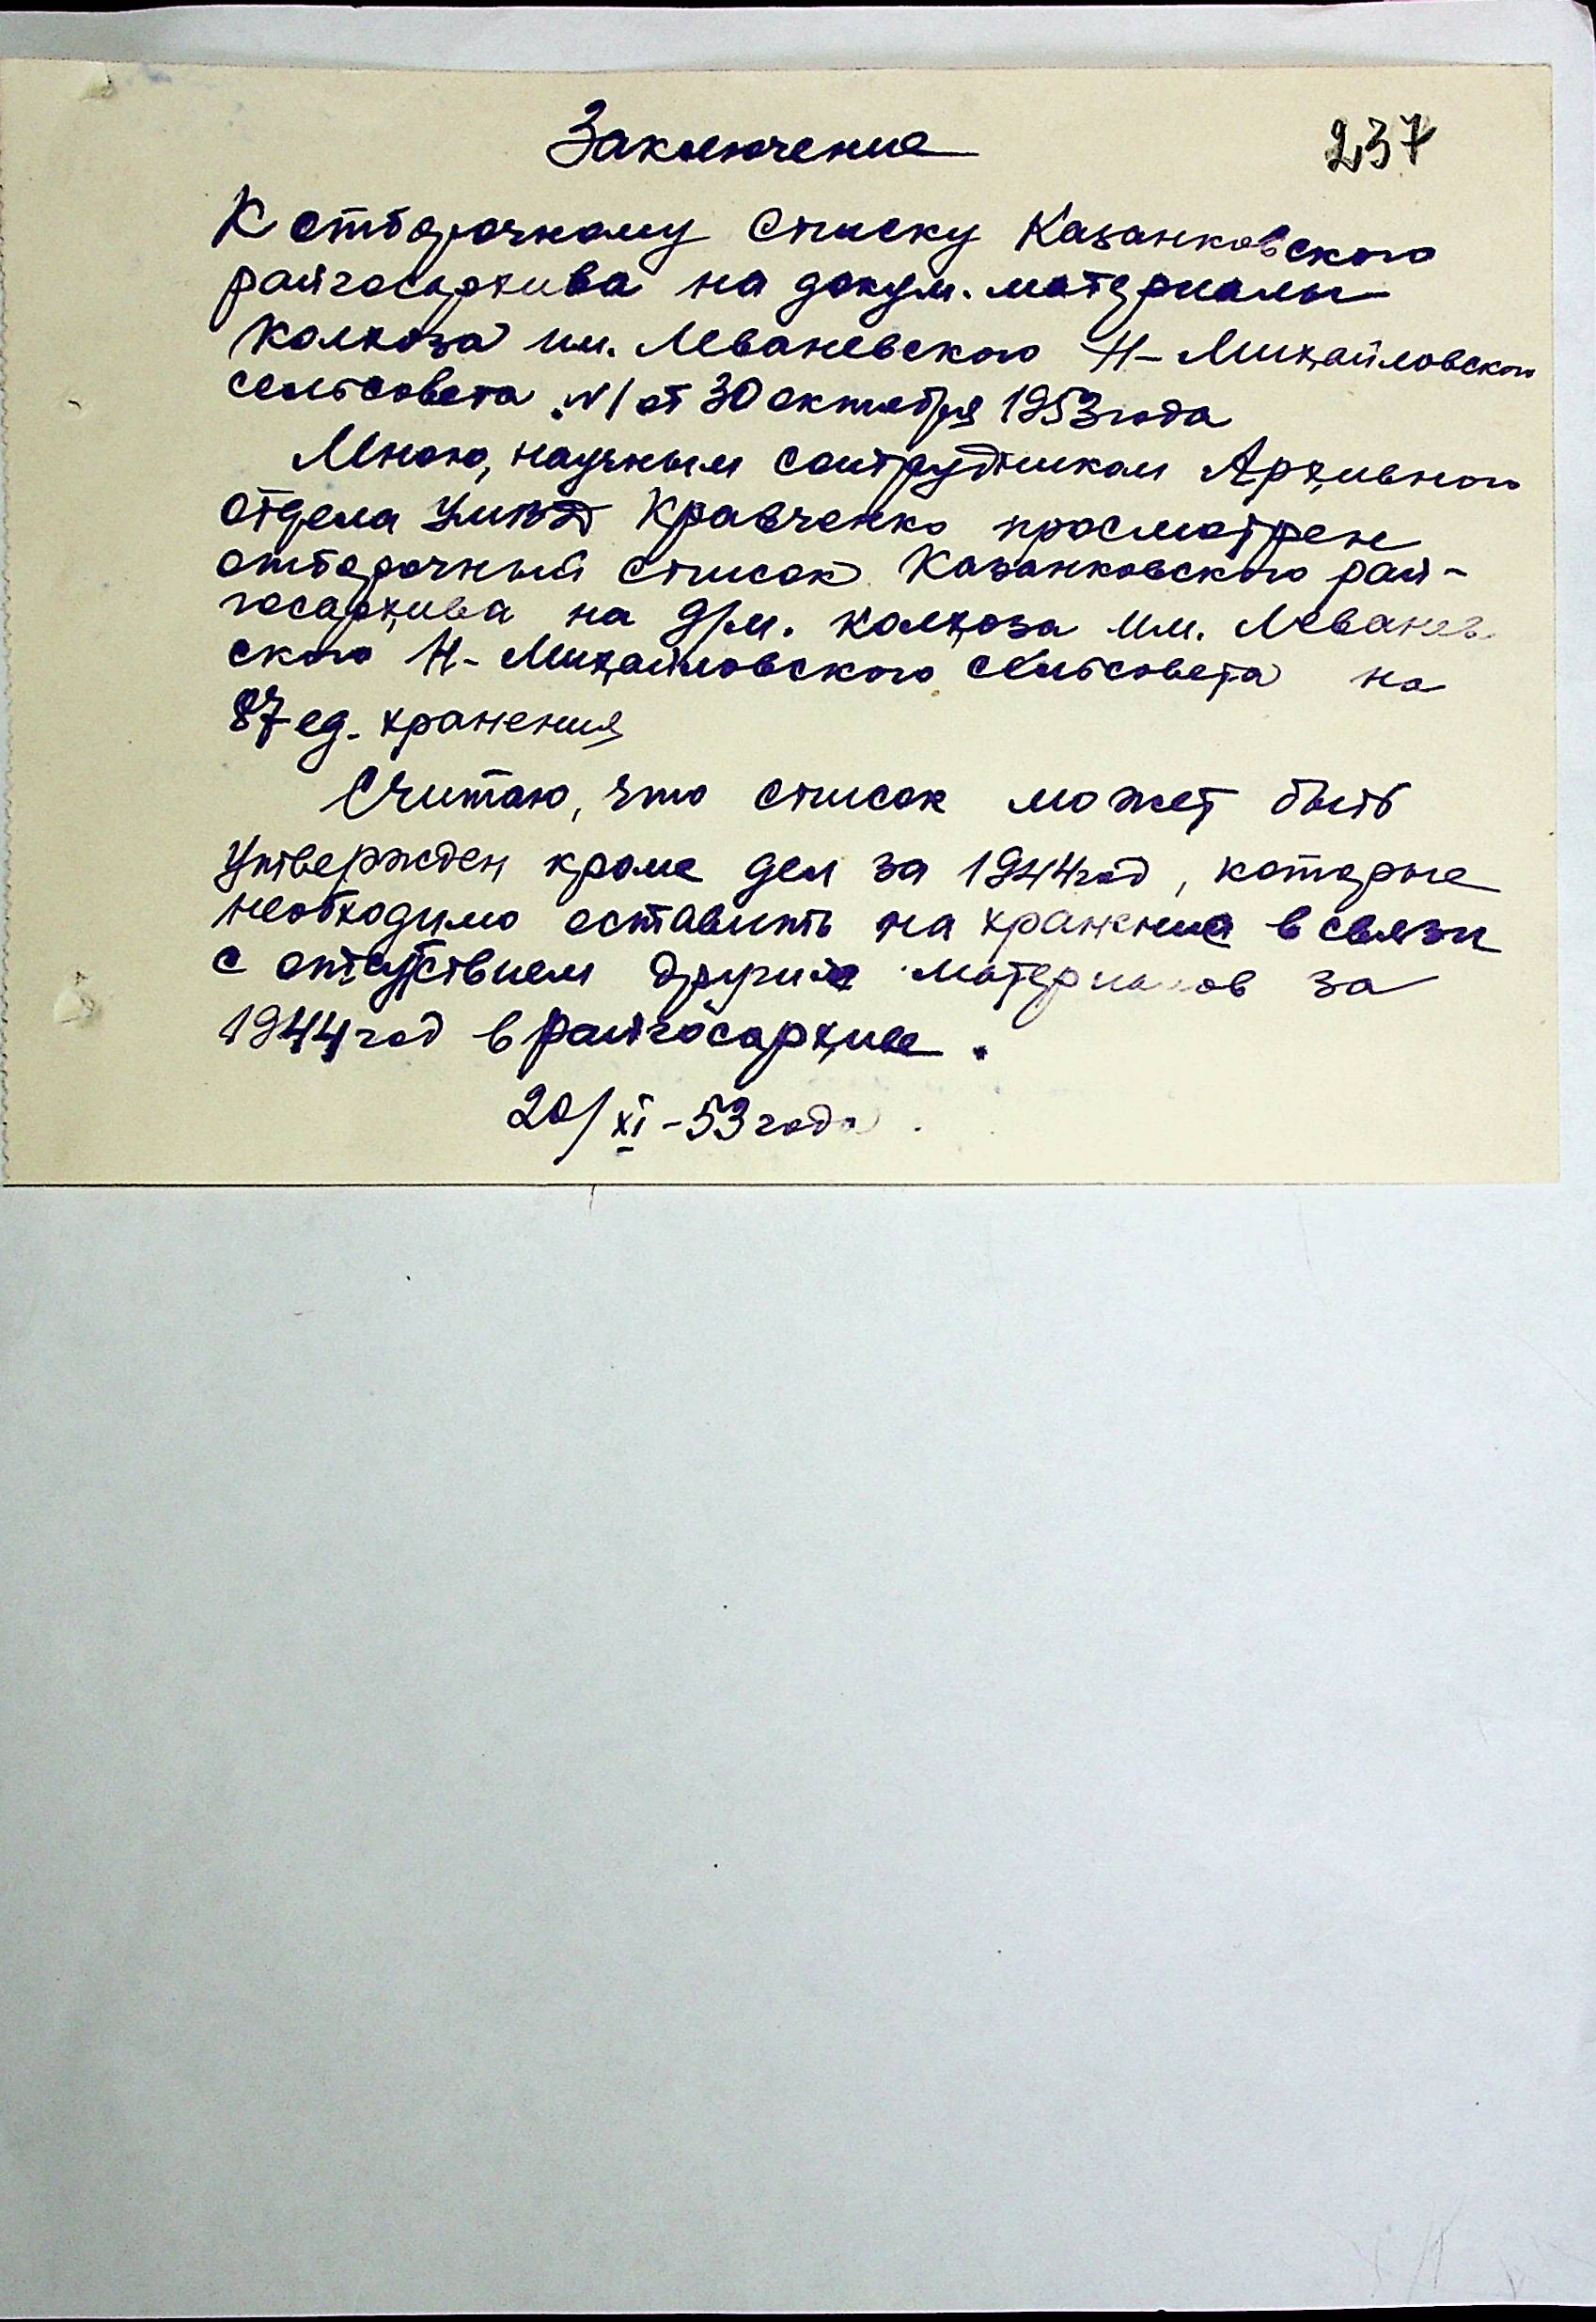 Заключение
237
К отборочному списку Казанковского
райгосархива на докум. материалы
колхоза им. Леваневского Н-Михайловского
сельсовета №1 от 30 октября 1953 года
Мною, научным сотрудником Архивного
отдела УМВД Кравченко просмотрен
отборочный список Казанковского рай-
госархива на д/м. колхоза им. Леванев
ского Н-Михайловского сельсовета на
87 ед. хранения
Считаю, что список может быть
утвержден кроме дел за 1944 год, которые
необходимо оставить на хранение в связи
с отсутствием других материалов за
1944 год в райгосархиве.
20/XI-53 года.